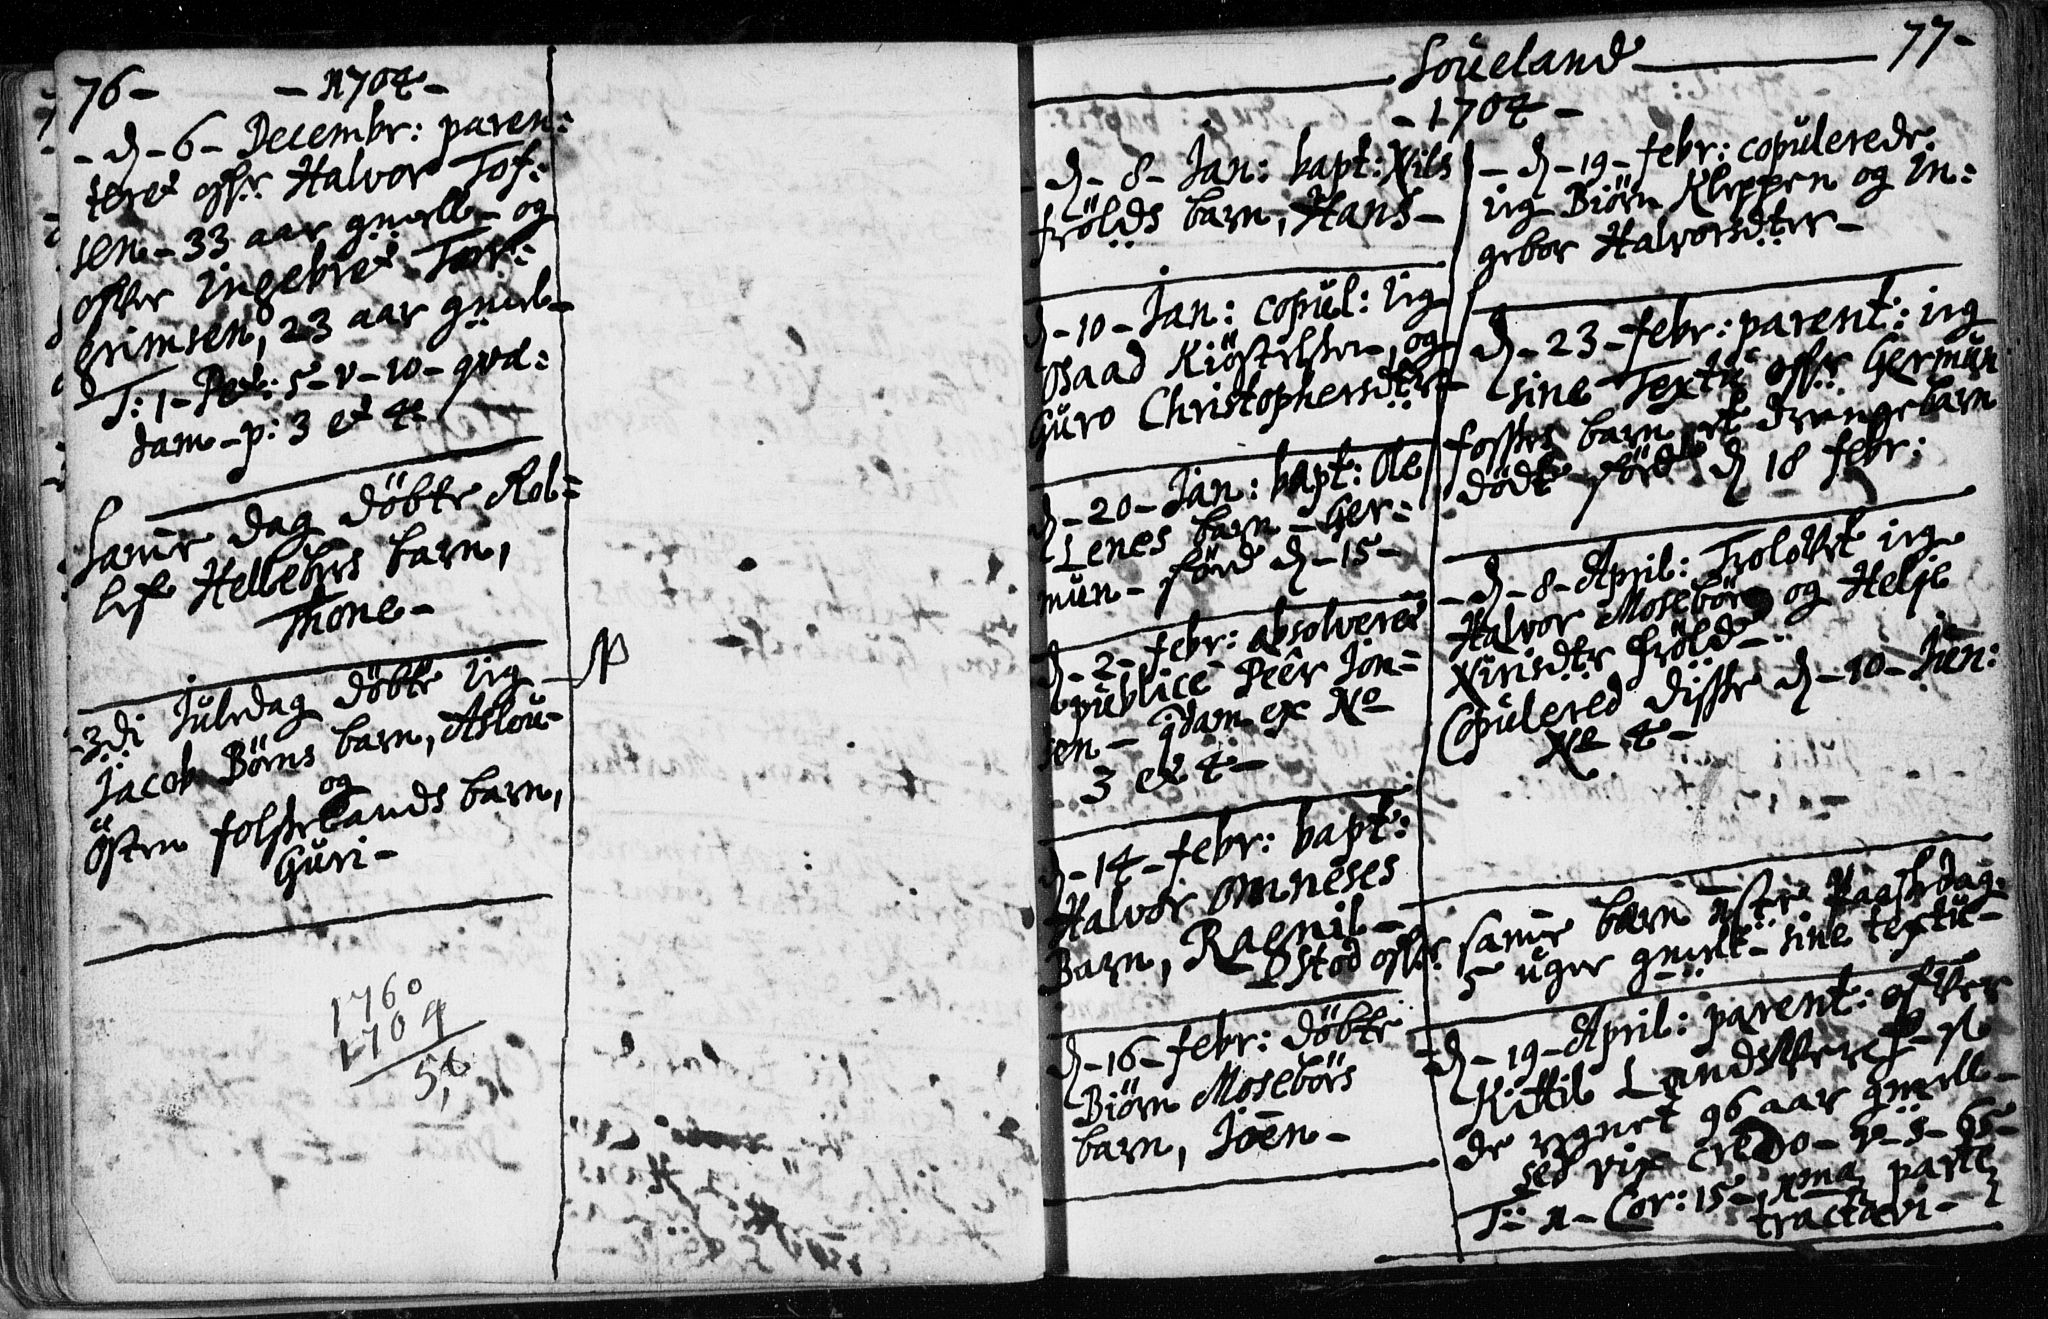 76 - - 1704 -
- d - 6 - Decembr: paren:
teret ofver Halvor Tof:
sen - 33 aar gamell - og
ofver Ingebret Tor:
erimsen, 23 aar gamel -
T: 1 - Pet: 5 - v - 10 - qvæ:
dam - p: 3 et 4
Same dag döbte Rol=
lef Hellebergs barn,
Thone -
3di Juledag döbte ieg
Jacob Börns barn, Aslou -
og
Östen folserlands barn,
Guri -
1760
1704
56
Loueland 77 -
- 1704 -
d - 8 - Jan: bapt: Nils
frölds barn, Hans -
d - 10 - Jan: copul: ieg
Kiöstelsen, og
Guro Christophersdtr
d - 20 - Jan: bapt: Ole
Lenes barn - Ger:
mun - förd d - 15 -
d - 2 - febr: absolveret
publice Peer Jon=
sen - qdam ex No
3 et 4 -
d - 14 - febr: bapt:
Halvor Omneses
Barn, Ragnil -
stod ofver
d - 16 - febr: döbte
Biörn Mosebörs
barn, Joen -
- d - 19 - febr: copulerede
ieg Biörn Kleppen og In:
gebor Halvorsdter -
d - 23 - febr: parent: ieg
sine Textu ofver Germun
fosses barn, et drengebarn
dödt förd d 18 febr:
- d - 8 - April: Trolovet ieg
Halvor Mosebör og Helje
Nirisdtr fröld -
Copulered disse d - 10 - Jun:
No 4 -
same barn Paaskedag
5 uger gamelt - sine textu -
d - 19 - April: parent: ofver
Kittil Landsverk -
de regnet 96 aar gamell -
sed vix credo -
T: 1 - Cor: 15 - 1ma parte
tractavi -